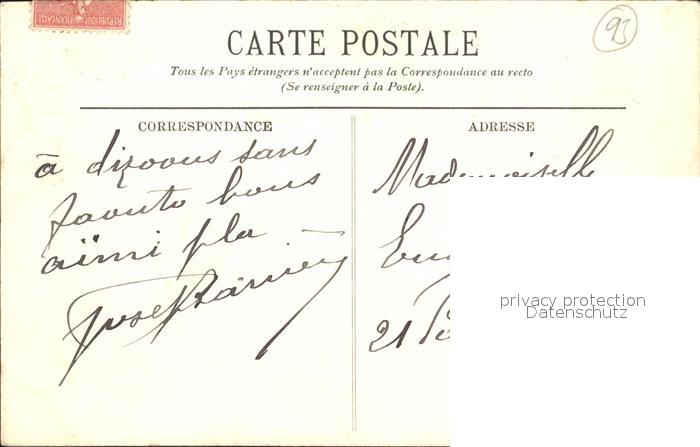 RÉPUBLIQUE FRANÇAISE
93
CARTE POSTALE
Tous les Pays étrangers n'acceptent pas la Correspondance au recto
(Se renseigner à la Poste).
CORRESPONDANCE
ADRESSE
à dizoous sans
faouto bous
aïmi pla
Mademoiselle
21
privacy protection
Datenschutz